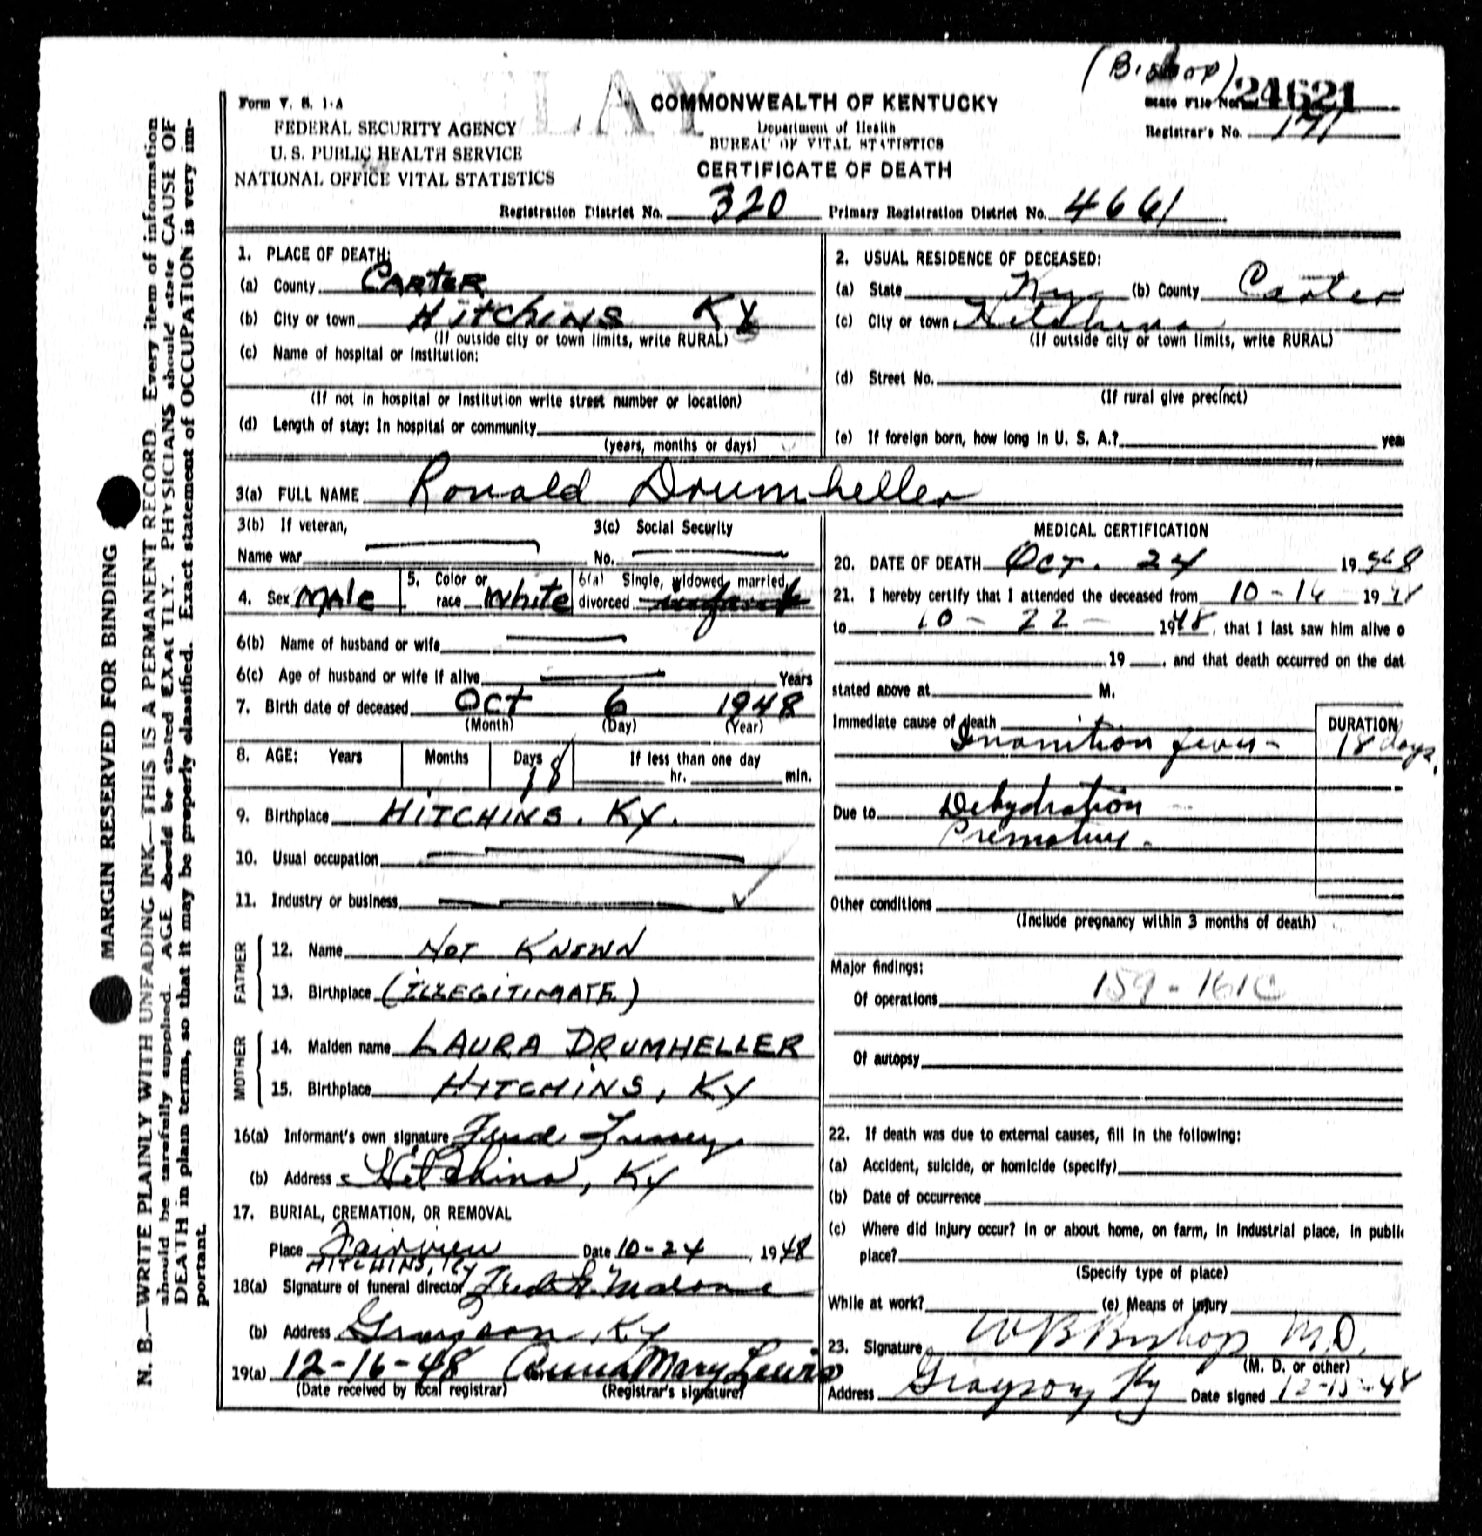 (Bishop)
CLAY
Form V. S. 1-A
COMMONWEALTH OF KENTUCKY
State File No. 24621
FEDERAL SECURITY AGENCY
Department of Health
Registrar's No. 171
U. S. PUBLIC HEALTH SERVICE
BUREAU OF VITAL STATISTICS
NATIONAL OFFICE VITAL STATISTICS
CERTIFICATE OF DEATH
Registration District No. 320 Primary Registration District No. 4661
1. PLACE OF DEATH:
(a) County CARTER
(b) City or town HITCHINS KY
(If outside city or town limits, write RURAL)
(c) Name of hospital or institution:
(If not in hospital or institution write street number or location)
(d) Length of stay: In hospital or community
(years, months or days)
2. USUAL RESIDENCE OF DECEASED:
(a) State Ky (b) County Carter
(c) City or town Hitchins
(If outside city or town limits, write RURAL)
(d) Street No.
(If rural give precinct)
(e) If foreign born, how long in U. S. A.? yea
3(a) FULL NAME Ronald Drumheller
3(b) If veteran, 3(c) Social Security
Name war No.
4. Sex Male 5. Color or race White 6(a) Single, widowed, married, divorced infant
6(b) Name of husband or wife
6(c) Age of husband or wife if alive Years
7. Birth date of deceased Oct 6 1948
(Month) (Day) (Year)
8. AGE: Years Months Days 18 If less than one day
hr. min.
9. Birthplace HITCHINS. KY.
10. Usual occupation
11. Industry or business
FATHER
12. Name NOT KNOWN
13. Birthplace (ILLEGITIMATE)
MOTHER
14. Maiden name LAURA DRUMHELLER
15. Birthplace HITCHINS, KY
16(a) Informant's own signature Fred
(b) Address Hitchins, KY
17. BURIAL, CREMATION, OR REMOVAL
Place Fairview Date 10-24, 1948
HITCHINS, KY
18(a) Signature of funeral director Fred H. Malone
(b) Address Grayson, KY
19(a) 12-16-48 Anna Mary Lewis
(Date received by local registrar) (Registrar's signature)
MEDICAL CERTIFICATION
20. DATE OF DEATH Oct. 24 1948
21. I hereby certify that I attended the deceased from 10-16 1948
to 10-22- 1948, that I last saw him alive o
19 , and that death occurred on the dat
stated above at M.
Immediate cause of death DURATION
Inanition fever- 18 days.
Due to Dehydration
Premature.
Other conditions
(Include pregnancy within 3 months of death)
Major findings:
Of operations 159-161C
Of autopsy
22. If death was due to external causes, fill in the following:
(a) Accident, suicide, or homicide (specify)
(b) Date of occurrence
(c) Where did injury occur? In or about home, on farm, in industrial place, in public
place?
(Specify type of place)
While at work? (e) Means of Injury
23. Signature W B Bishop M.D.
(M. D. or other)
Address Grayson, Ky Date signed 12-15-48
MARGIN RESERVED FOR BINDING
N. B.—WRITE PLAINLY WITH UNFADING INK—THIS IS A PERMANENT RECORD. Every item of information
should be carefully supplied. AGE should be stated EXACTLY. PHYSICIANS should state CAUSE OF
DEATH in plain terms, so that it may be properly classified. Exact statement of OCCUPATION is very im-
portant.